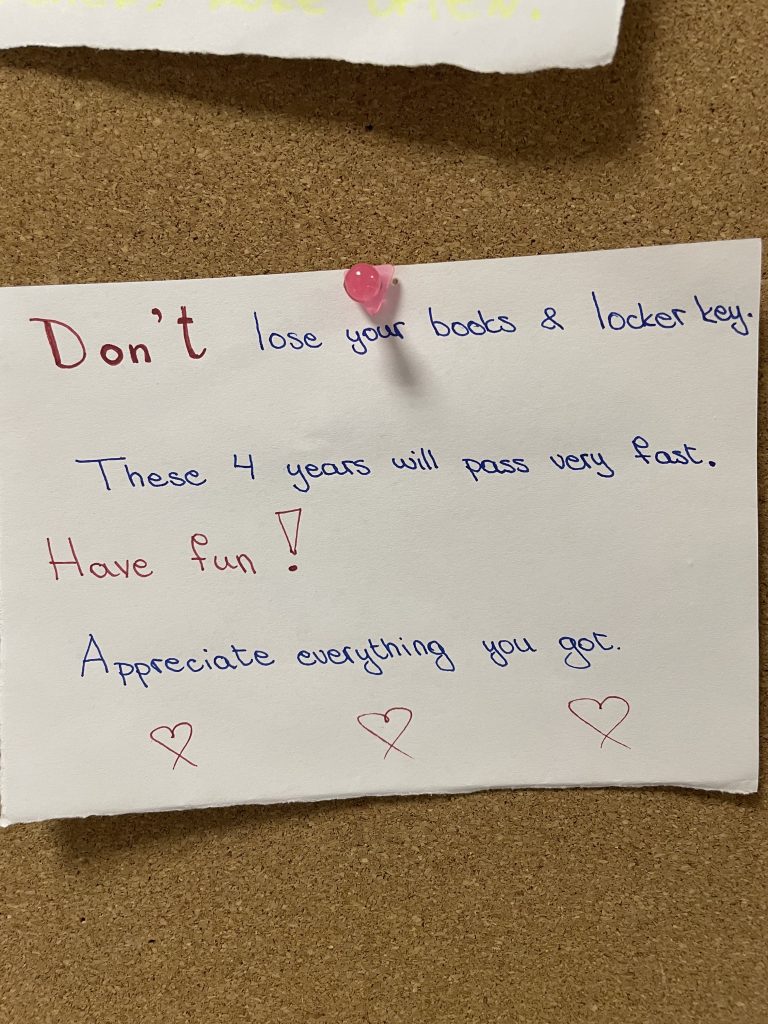 OFTEN.
Don't lose your books & locker key.
These 4 years will pass very fast.
Have fun!
Appreciate everything you got.